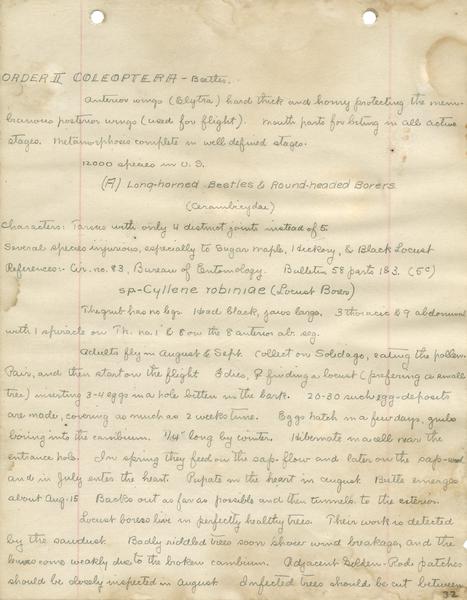 ORDER II COLEOPTERA - Beetles.
Anterior wings (Elytra) hard thick and horny protecting the mem-
branous posterior wings (used for flight). Mouth parts for biting in all active
stages. Metamorphoses complete in well defined stages.
12000 species in U.S.
(A) Long-horned Beetles & Round-headed Borers
(Cerambicydae)
Characters: Tarsus with only 4 distinct joints instead of 5
Several species injurious, especially to Sugar maple, Hickory, & Black Locust
References:- Cir. no. 83, Bureau of Entomology. Bulletin 58 parts 1&3. (5¢)
sp-Cyllene robiniae (Locust Borer)
The grub has no legs. Head black, jaws large. 3 thoracic & 9 abdominal
with 1 spiracle on Th. no. 1 & 8 on the 8 anterior ab. seg.
Adults fly in August & Sept. Collect on Solidago, eating the pollen.
Pair, and then start on the flight. ♂ dies, ♀ finding a locust (prefering a small
tree) inserting 3-4 eggs in a hole bitten in the bark. 20-30 such egg-deposits
are made, covering as much as 2 weeks time. Eggs hatch in a few days, grubs
boring into the cambium. 1/4" long by winter. Hibernate in a cell near the
entrance hole. In spring they feed on the sap-flow and later on the sap-wood
and in July enter the heart. Pupate in the heart in august. Beetle emerges
about Aug-15. Backs out as far as possible and then tunnels to the exterior.
Locust borers live in perfectly healthy trees. Their work is detected
by the sawdust. Badly riddled trees soon show wind breakages, and the
leaves come weakly due to the broken cambium. Adjacent Golden-Rod patches
should be closely inspected in August. Infected trees should be cut between
32